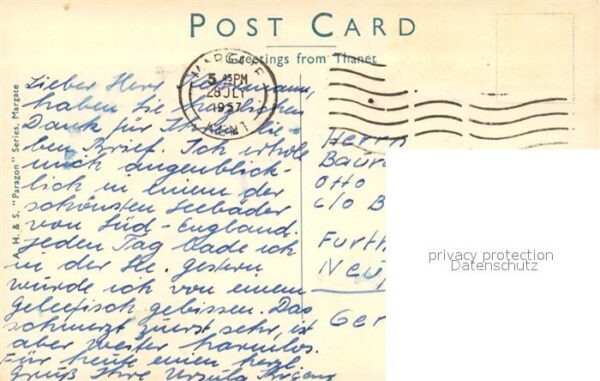 POST CARD
Greetings from Thanet
A. H. & S. "Paragon" Series, Margate
MARGATE
5 45PM
28 JLY
1957
Lieber Herr
haben Sie herzlichen
Dank für Ihren lie-
ben Brief. Ich erhole
mich augenblick-
lich in einem der
schönsten Seebäder
von Süd-England.
Jeden Tag bade ich
in der See. Gestern
wurde ich von einem
gebissen. Das
schmerzt zuerst sehr, ist
aber weiter harmlos.
Für heute einen herzl.
Gruß Ihre Ursula
Herrn
Baur
Otto
c/o B
Furth
Neu
Ger
privacy protection
Datenschutz